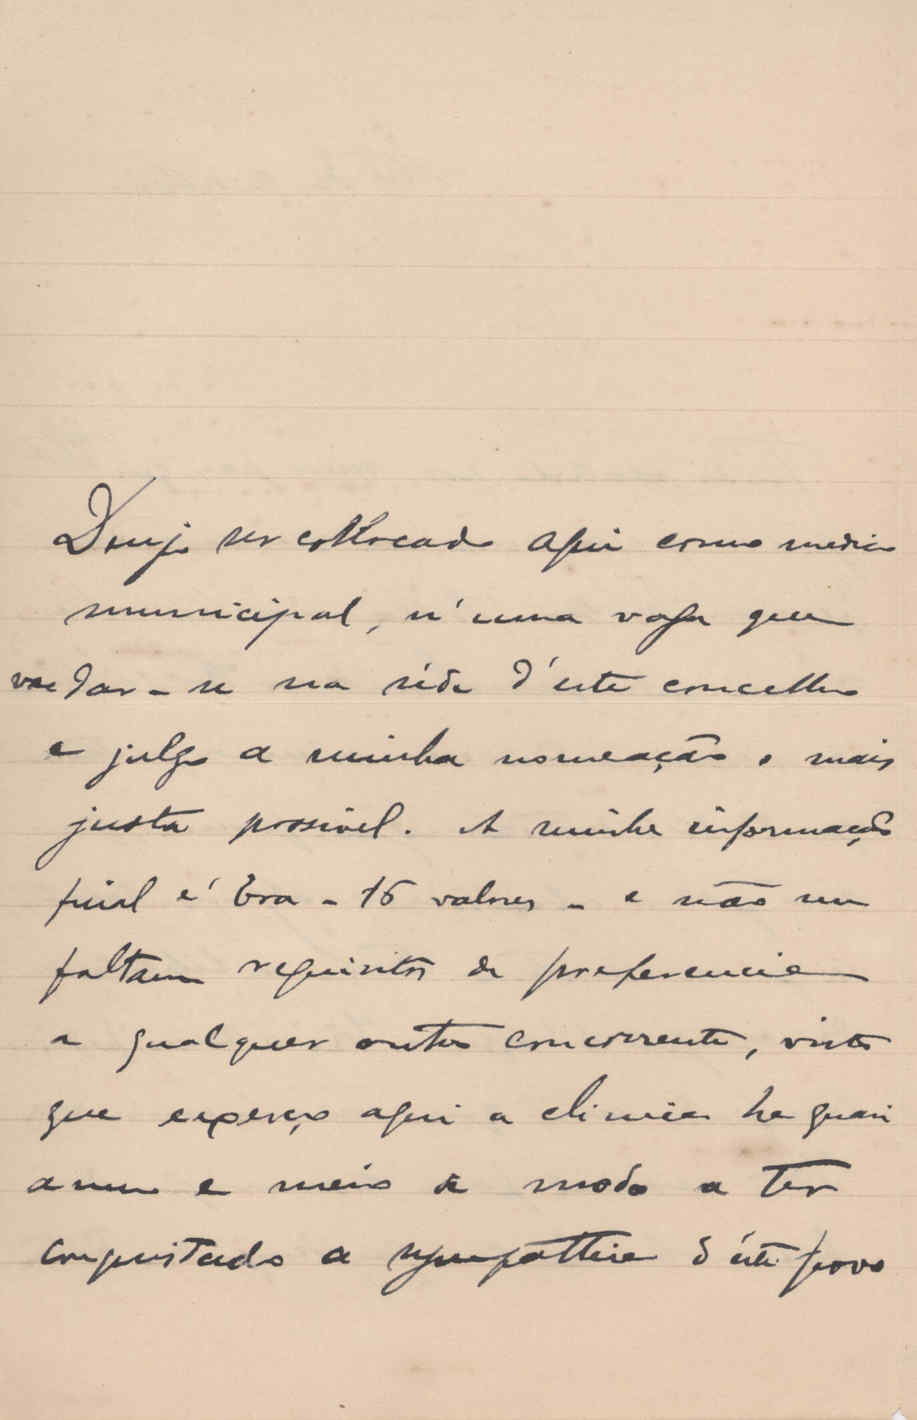 Desejo ser collocado aqui como medico
municipal, n'uma vaga que
vae dar-se na séde d'este concelho
e julgo a minha nomeação o mais
justa possivel. A minha informação
final é boa - 15 valores - e não me
faltam requisitos de preferencia
a qualquer outro concorrente, visto
que exerço aqui a clinica ha quasi
anno e meio de modo a ter
conquistado a sympathia d'éste povo